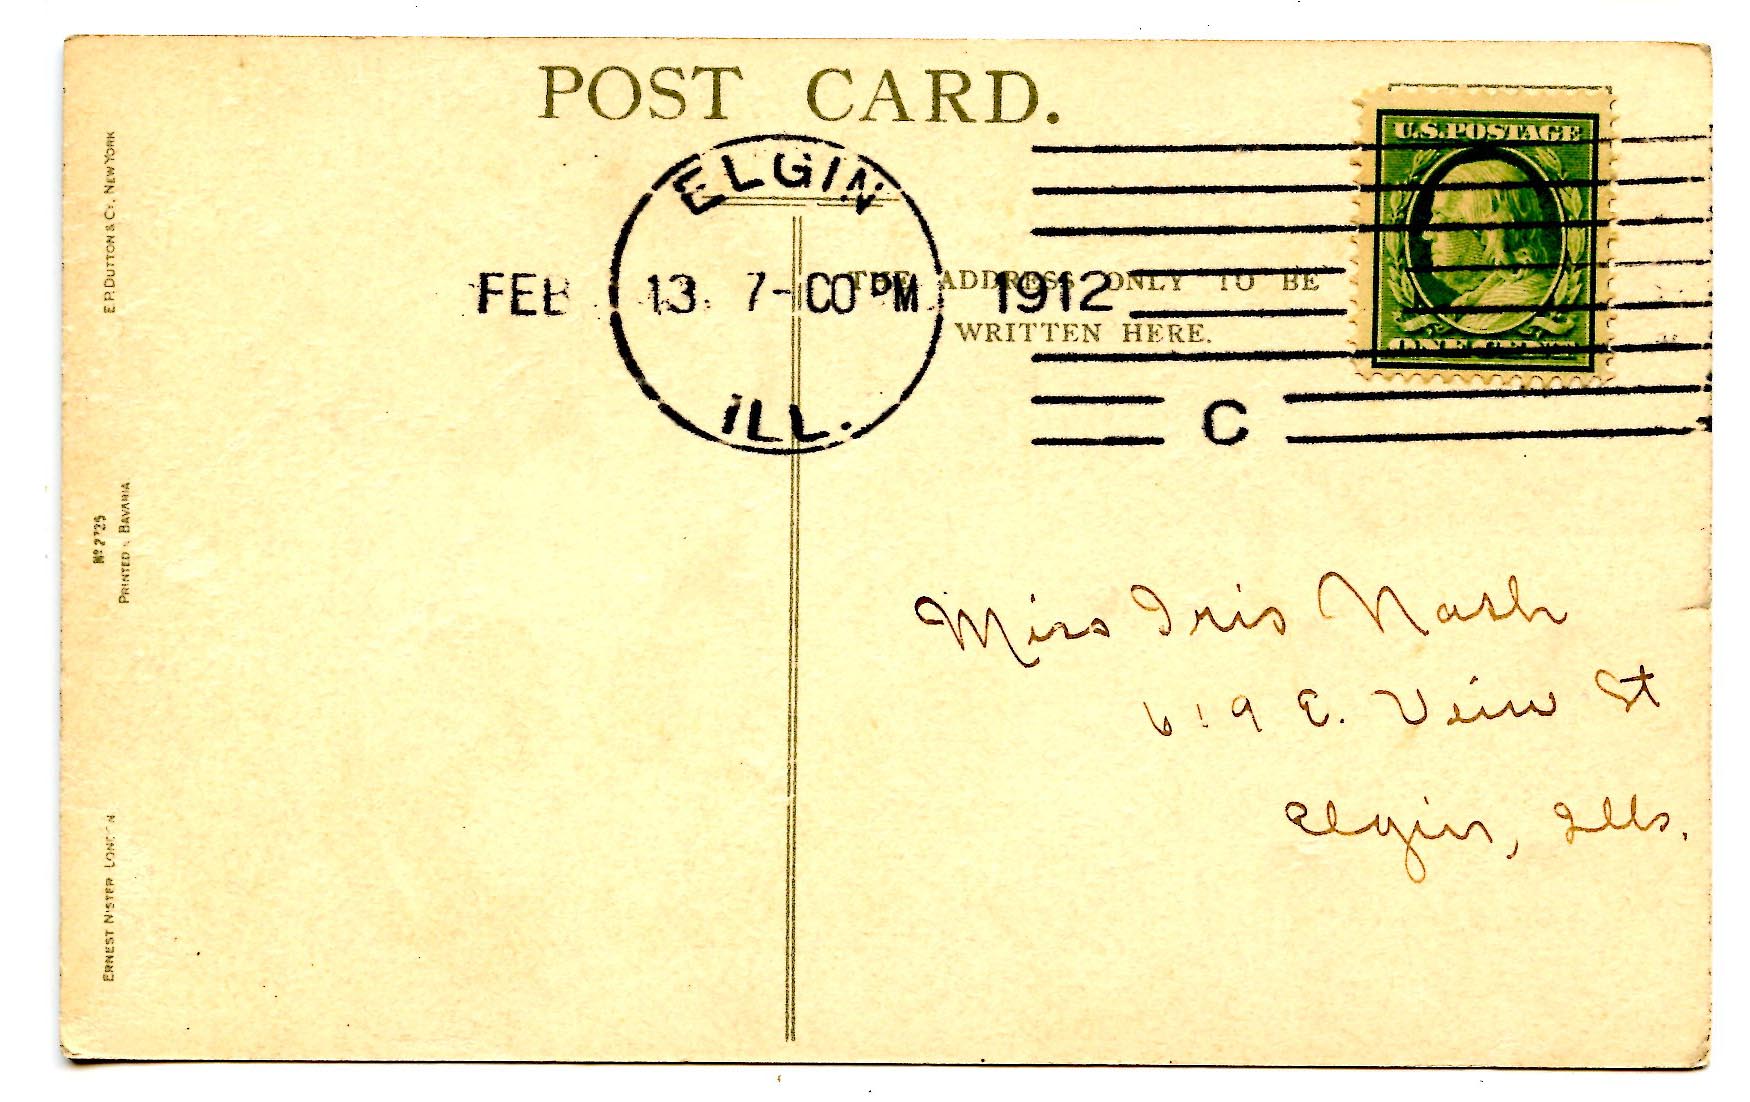 POST CARD.
U.S.POSTAGE
ELGIN
FEB 13 7-00 PM 1912
ILL.
THE ADDRESS ONLY TO BE
WRITTEN HERE.
ONE CENT
C
E.P. DUTTON & Co. NEW YORK
No 2725
PRINTED IN BAVARIA
ERNEST NISTER LONDON
Miss Iris Nash
619 E. Veiw St
Elgin, Ills.